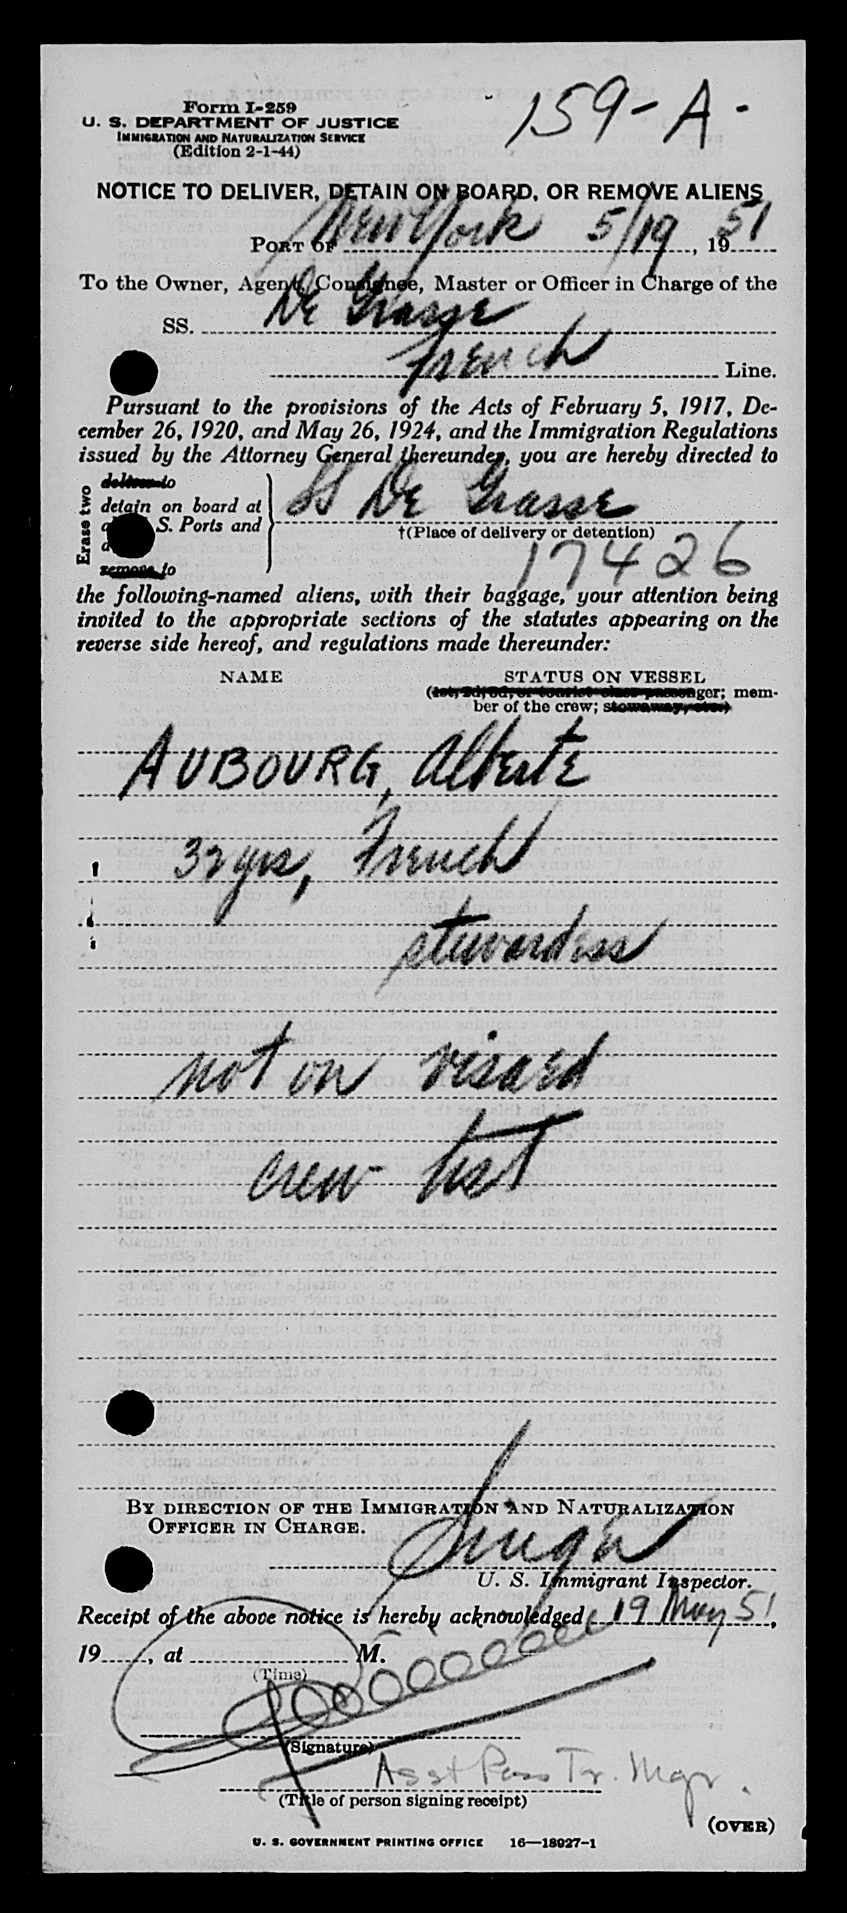 Form I-259
U. S. DEPARTMENT OF JUSTICE
IMMIGRATION AND NATURALIZATION SERVICE
(Edition 2-1-44)
159-A-
NOTICE TO DELIVER, DETAIN ON BOARD, OR REMOVE ALIENS
PORT OF New York 5/19, 1951
To the Owner, Agent, Consignee, Master or Officer in Charge of the
SS. De Grasse
French Line.
Pursuant to the provisions of the Acts of February 5, 1917, De-
cember 26, 1920, and May 26, 1924, and the Immigration Regulations
issued by the Attorney General thereunder, you are hereby directed to
Erase two
deliver to
detain on board at
S. Ports and
remove to
SS De Grasse
†(Place of delivery or detention)
17426
the following-named aliens, with their baggage, your attention being
invited to the appropriate sections of the statutes appearing on the
reverse side hereof, and regulations made thereunder:
NAME STATUS ON VESSEL
(1st, 2d, 3d, or tourist class passenger; mem-
ber of the crew; stowaway, etc.)
AUBOURG, Alberte
32 yrs, French
stewardess
not on visaed
crew list
BY DIRECTION OF THE IMMIGRATION AND NATURALIZATION
OFFICER IN CHARGE.
U. S. Immigrant Inspector.
Receipt of the above notice is hereby acknowledged 19 May 51,
19, at M.
(Time)
(Signature)
Asst Pass Tr. Mgr.
(Title of person signing receipt)
(OVER)
U. S. GOVERNMENT PRINTING OFFICE 16—18927-1